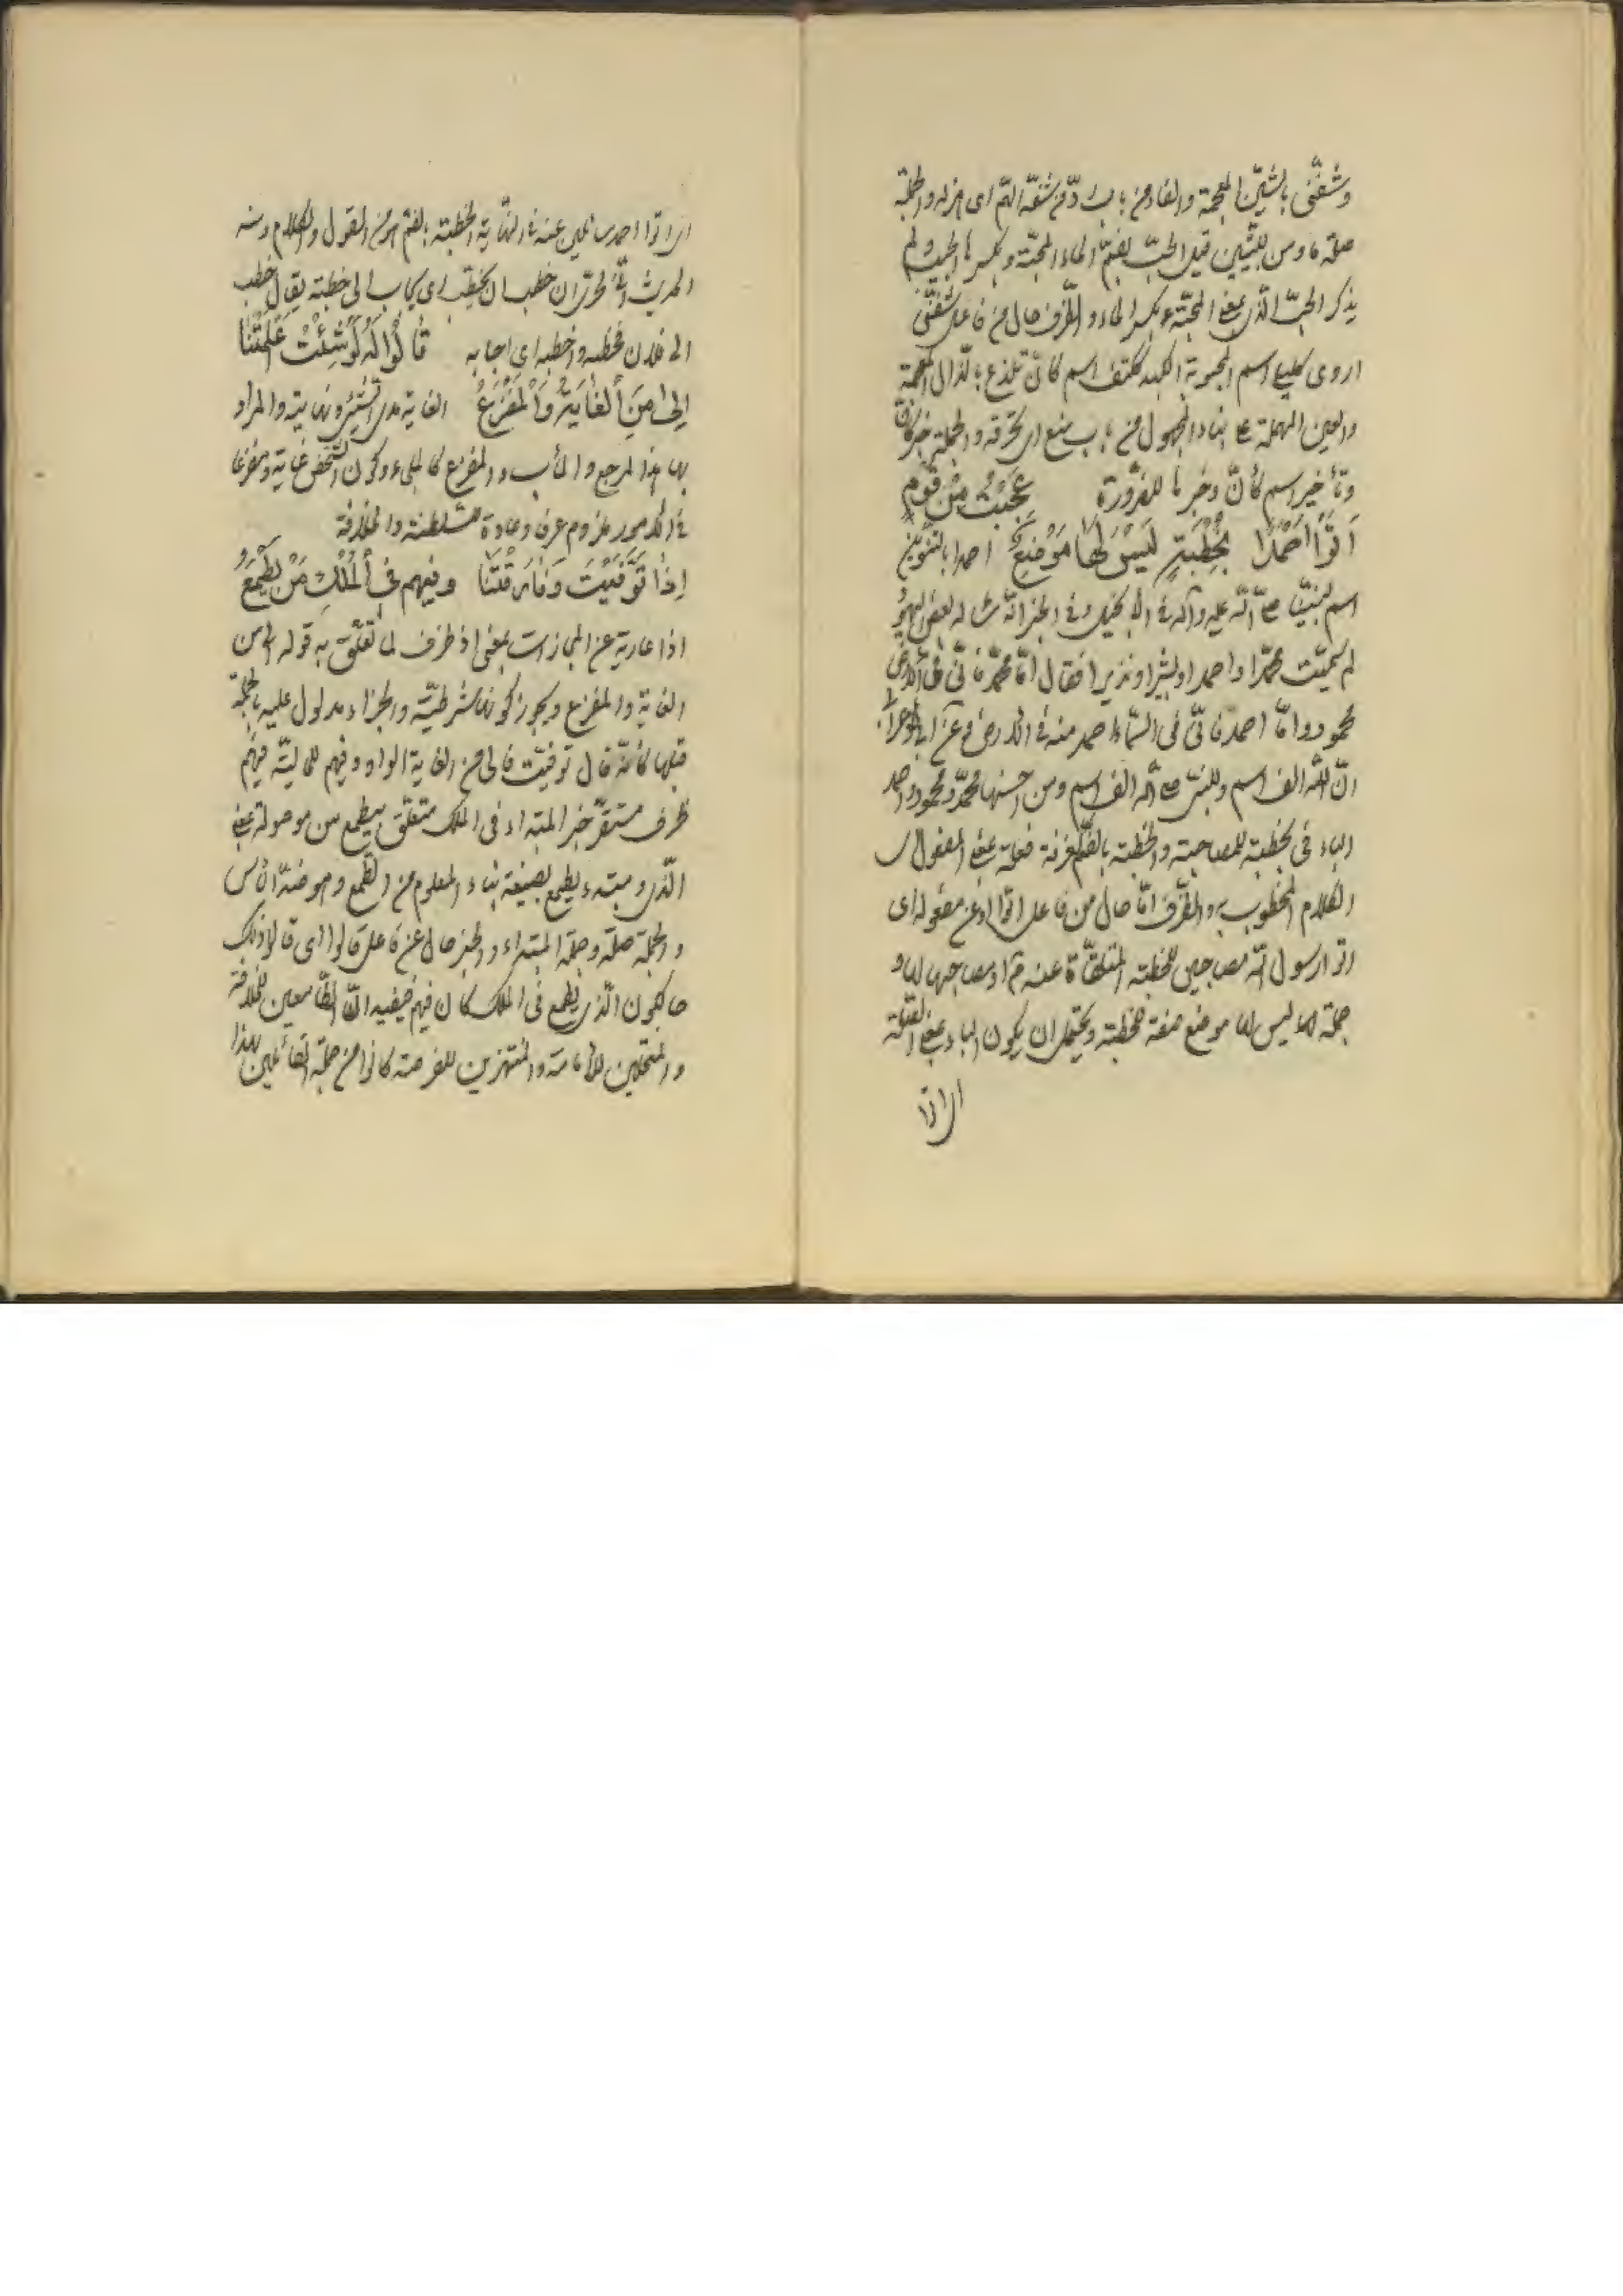 وشفّنى بالشين المعجمة والفاء من باب ردّ من شفّه الهمّ اى هزله والجملة
صلة ما ومن للتبيين قيل الحبّ بضمّ الحاء المحبّة وبكسرها الحبيب ولم
يذكر الحبّ الّذى بمعنى المحبّة بكسر الحاء والظّرف حال من فاعل شفّنى
اروى اسم المحبوبة الكبد ككتف اسم كانّ تلذع بالذال المعجمة
والعين المهملة على بناء المجهول من باب منع اى تحرقه والجملة خبر كانّ
وتأخير اسم كأنّ وخبرها للضرورة عَجِبْتُ مِنْ قَوْمٍ
اَتَوْا اَحْمَدًا بِخُطْبَةٍ لَيْسَ لَهَا مَوْضِعٌ احمدا بالتنوين
اسم لنبيّنا صلى اللّه عليه وآله فى الانجيل وفى الخبر انّه سأله بعض اليهود
لم سمّيت محمّدا واحمد او بشيرا ونذيرا فقال امّا محمّد فانّى فى الارض
محمود وامّا احمد فانّى فى السّماء احمد منه فى الارض وعن
انّ للّه الف اسم وللنبى صلى اللّه الف اسم ومن احسنها محمّد ومحمود واحمد
الباء فى بخطبة للمصاحبة والخطبة بالضّم كغرفة فعلة بمعنى المفعول
الكلام المخطوب به والظّرف امّا حال من فاعل اتوا او عن مفعوله اى
اتوا رسول اللّه مصاحبين للخطبة المتلقّاة عنه او مصاحبها
جملة ليس لها موضع صفة للخطبة ويحتمل ان يكون الباء بمعنى
اى اتوا
اى اتوا احمد سائلين عنه فى النّهاية الخطبة بالضم هو من القول والكلام ومنه
الحديث انّه لحرىّ ان خطب ان يخطب اى يجاب الى خطبته يقال خطب
الى فلان فخطبه واخطبه اى اجابه قَالُوا لَهُ لَوْ شِئْتَ عَلَّمْتَنَا
اِلَى مَنِ اَلْغَايَةُ وَالْمَفْزَعُ الغاية مدى الشّىء ونهايته والمراد
بها هنا المرجع والمأب والمفزع كالملجاء وكون الشّخص غاية ومفزعا
فى الامور ملزوم عرفا وعادة للسّلطنة والخلافة
اِذَا تُوُفِّيتَ وَفَارَقْتَنَا وَفِيهِمْ فِى اَلْمُلْكِ مَنْ يَطْمَعُ
اذا عارية عن المجازات بمعنى اذ ظرف لما تعلّق به قوله الى من
الغاية والمفزع ويجوز كونها شرطيّة والجزاء مدلول عليه بالجملة
قبلها كانّه قال توفّيت فالى من الغاية الواو وفيهم للحاليّة فيهم
ظرف مستقرّ خبر المبتداء فى الملك متعلّق بيطمع من موصولة بمعنى
الّذى ومبتدء يطمع بصيغة بناء المعلوم من الطّمع وهو ضدّ اليأس
والجملة صلة وجملة المبتداء والخبر حال عن فاعل قالوا اى قالوا ذلك
حالكون الّذى يطمع فى الملك كان فيهم فيفيد انّ الطّامعين للخلافة
والمنتحلين للأمامة والمنتهزين للفرصة كانوا من جملة القائلين لهذا